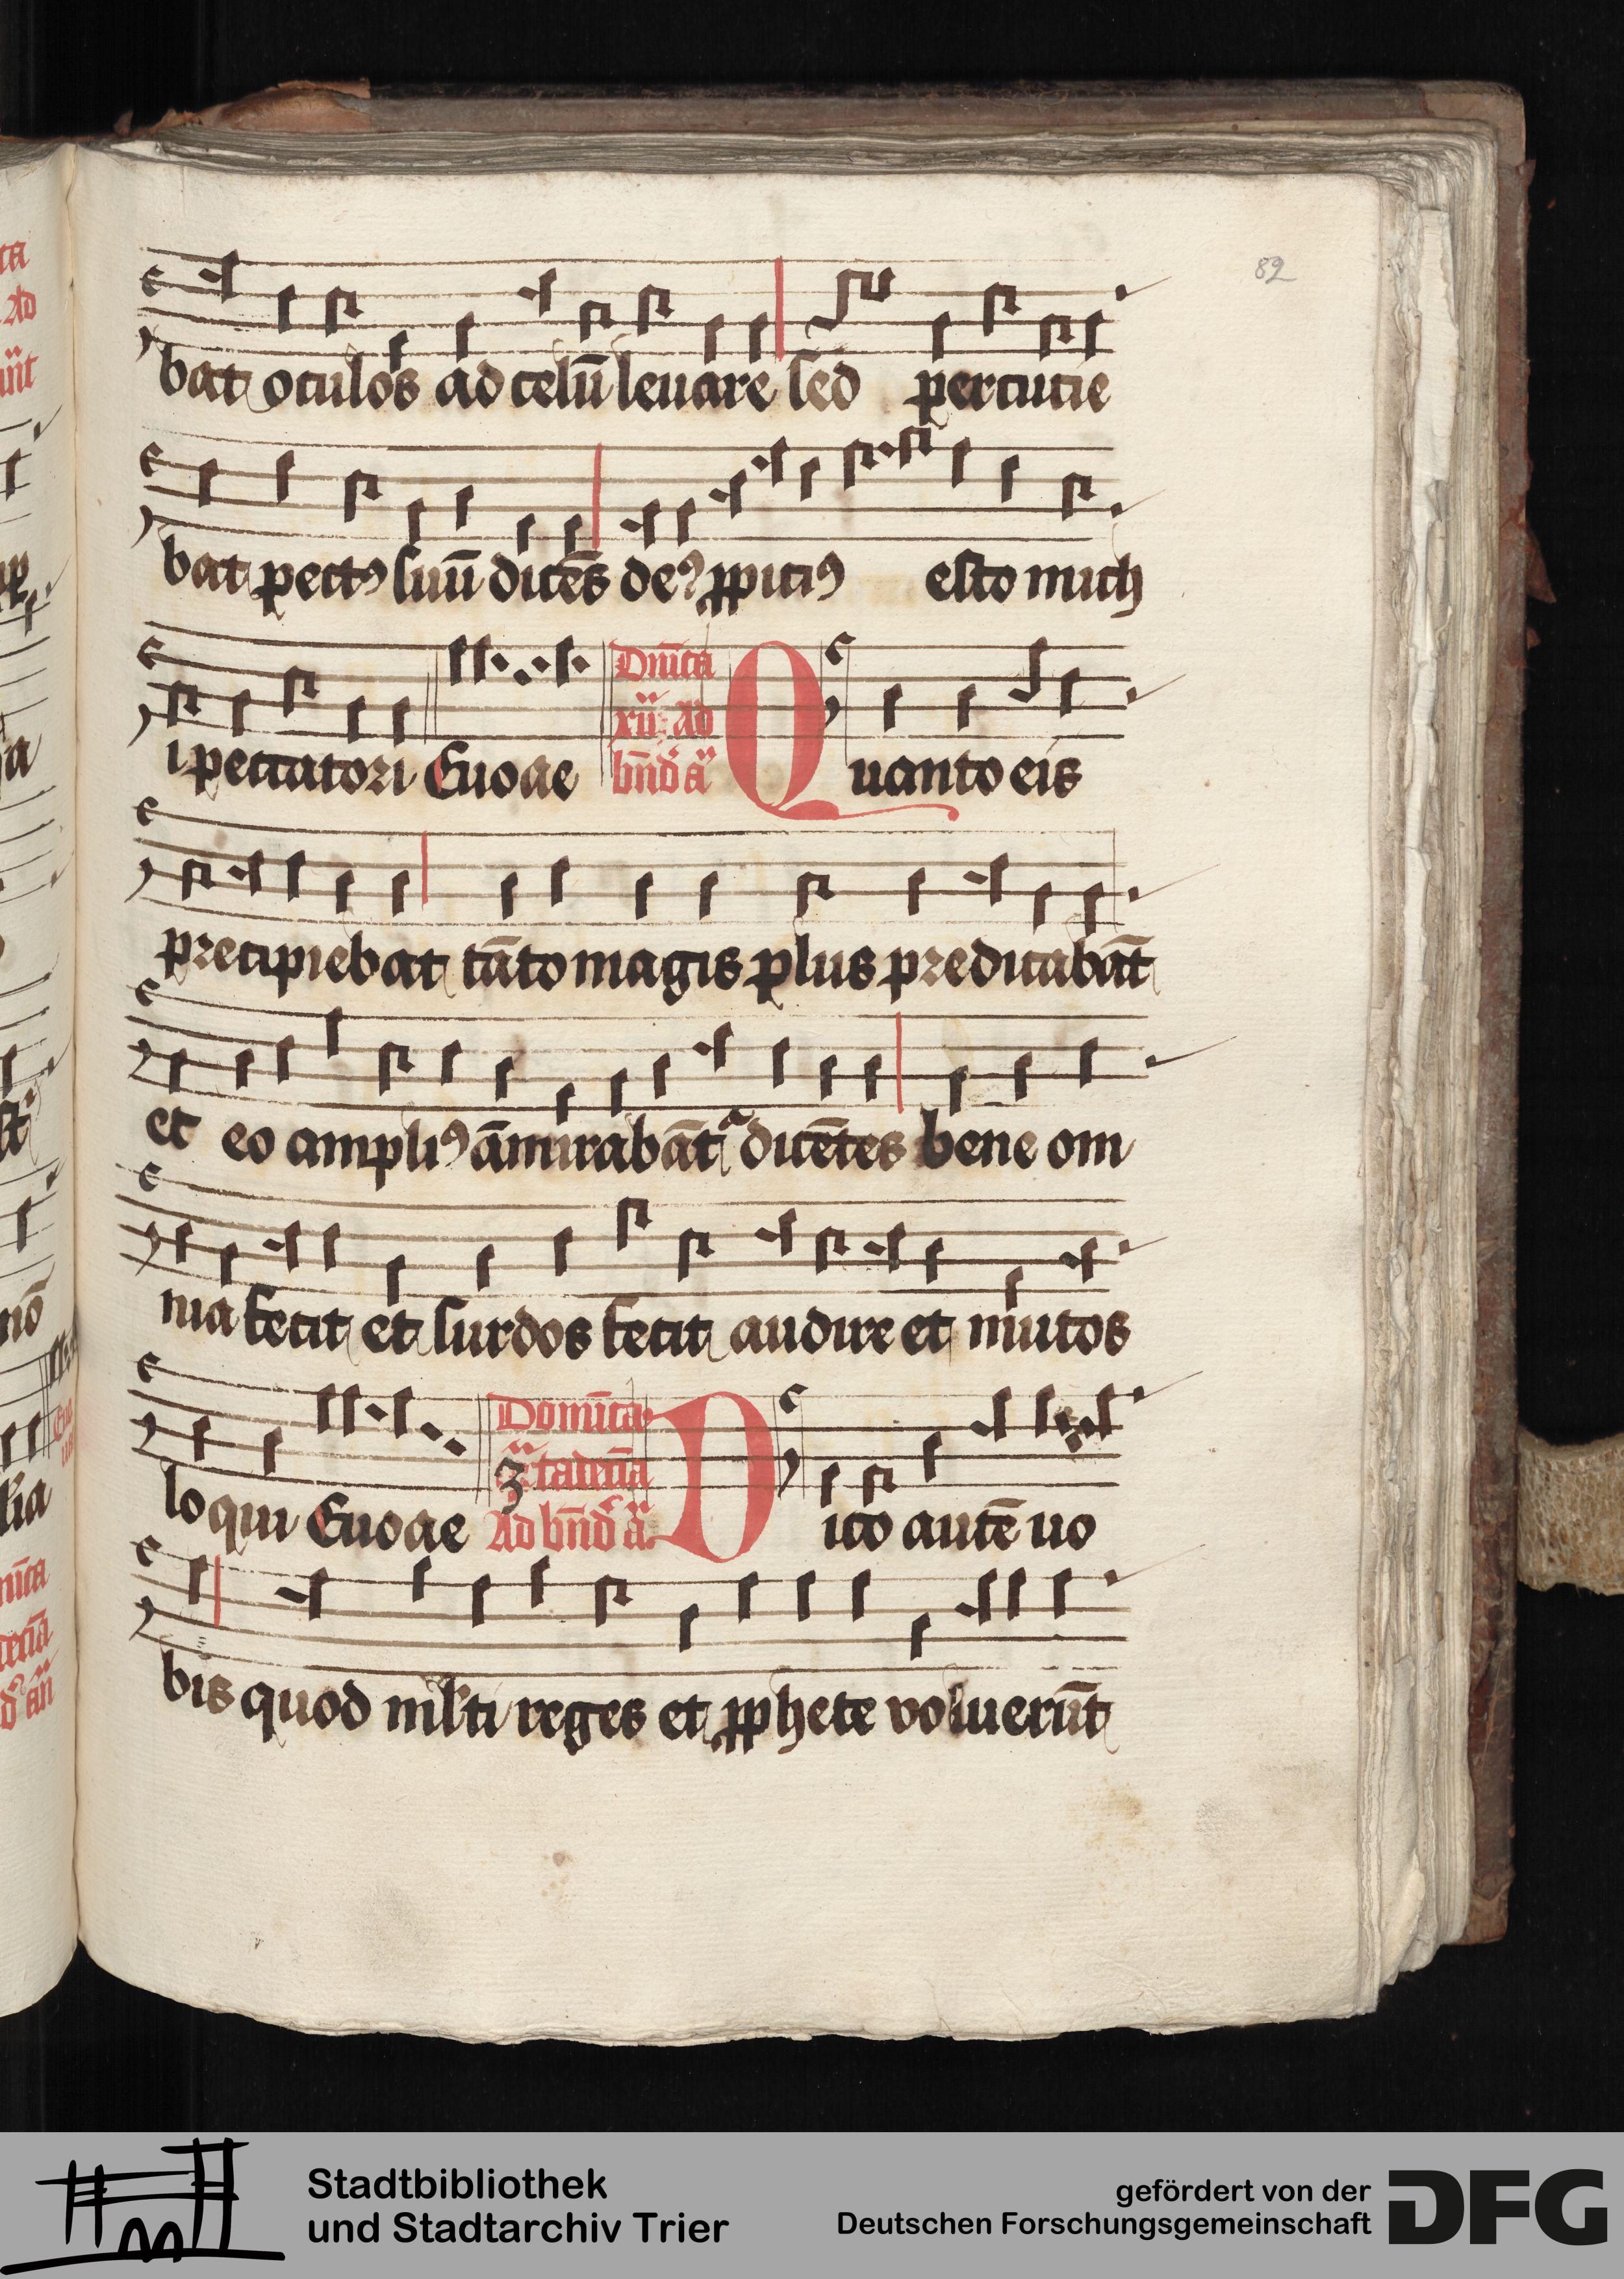 89
bat oculos ad celū leuare sed percucie
bat pectꝯ suū dicēs deꝰ ꝓpiciꝯ esto mich
i peccatori Euoae Dn̄ica xii Ad bn̄d a Quanto eis
precipiebat tāto magis plus predicabāt
et eo ampliꝯ āmirabāt dicētes bene om
nia fecit et surdos fecit audire et mutos
loqui Euoae Domīca Ad bn̄d a Dico autē uo
bis quod ml̄ti reges et ꝓphete voluerūt
Stadtbibliothek
und Stadtarchiv Trier
gefördert von der
Deutschen Forschungsgemeinschaft
DFG